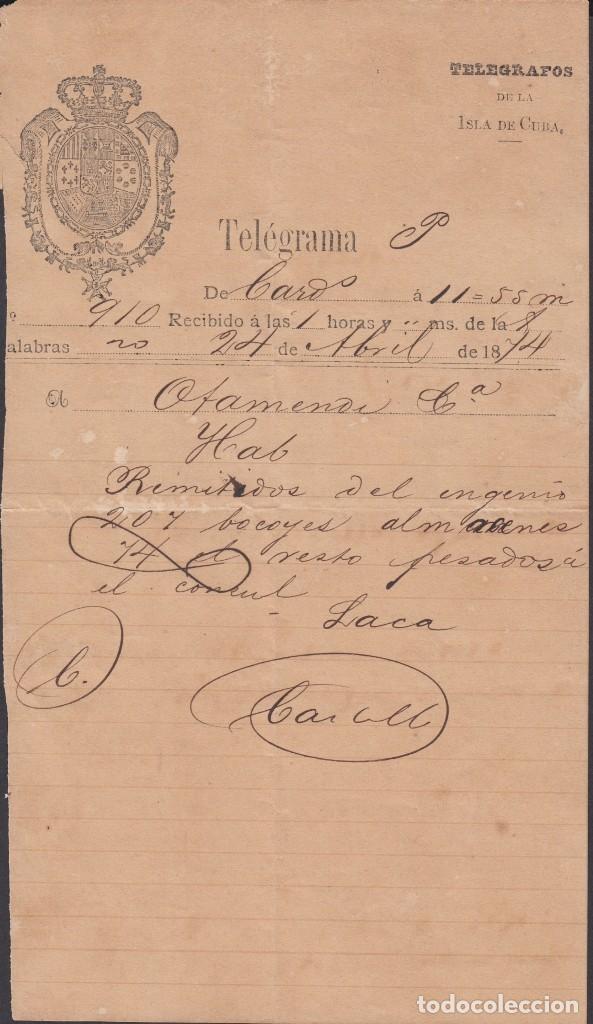 TELEGRAFOS
DE LA
ISLA DE CUBA.
Telégrama P
De Card.o á 11=55 m
º 910 Recibido á las 1 horas y " ms. de la
alabras 20 24 de Abril de 1874
A Otamendi C.a
Hab
Remitidos del ingenio
207 bocoyes almacenes
74 el resto pesados á
el consul
Laca
C.
todocoleccion